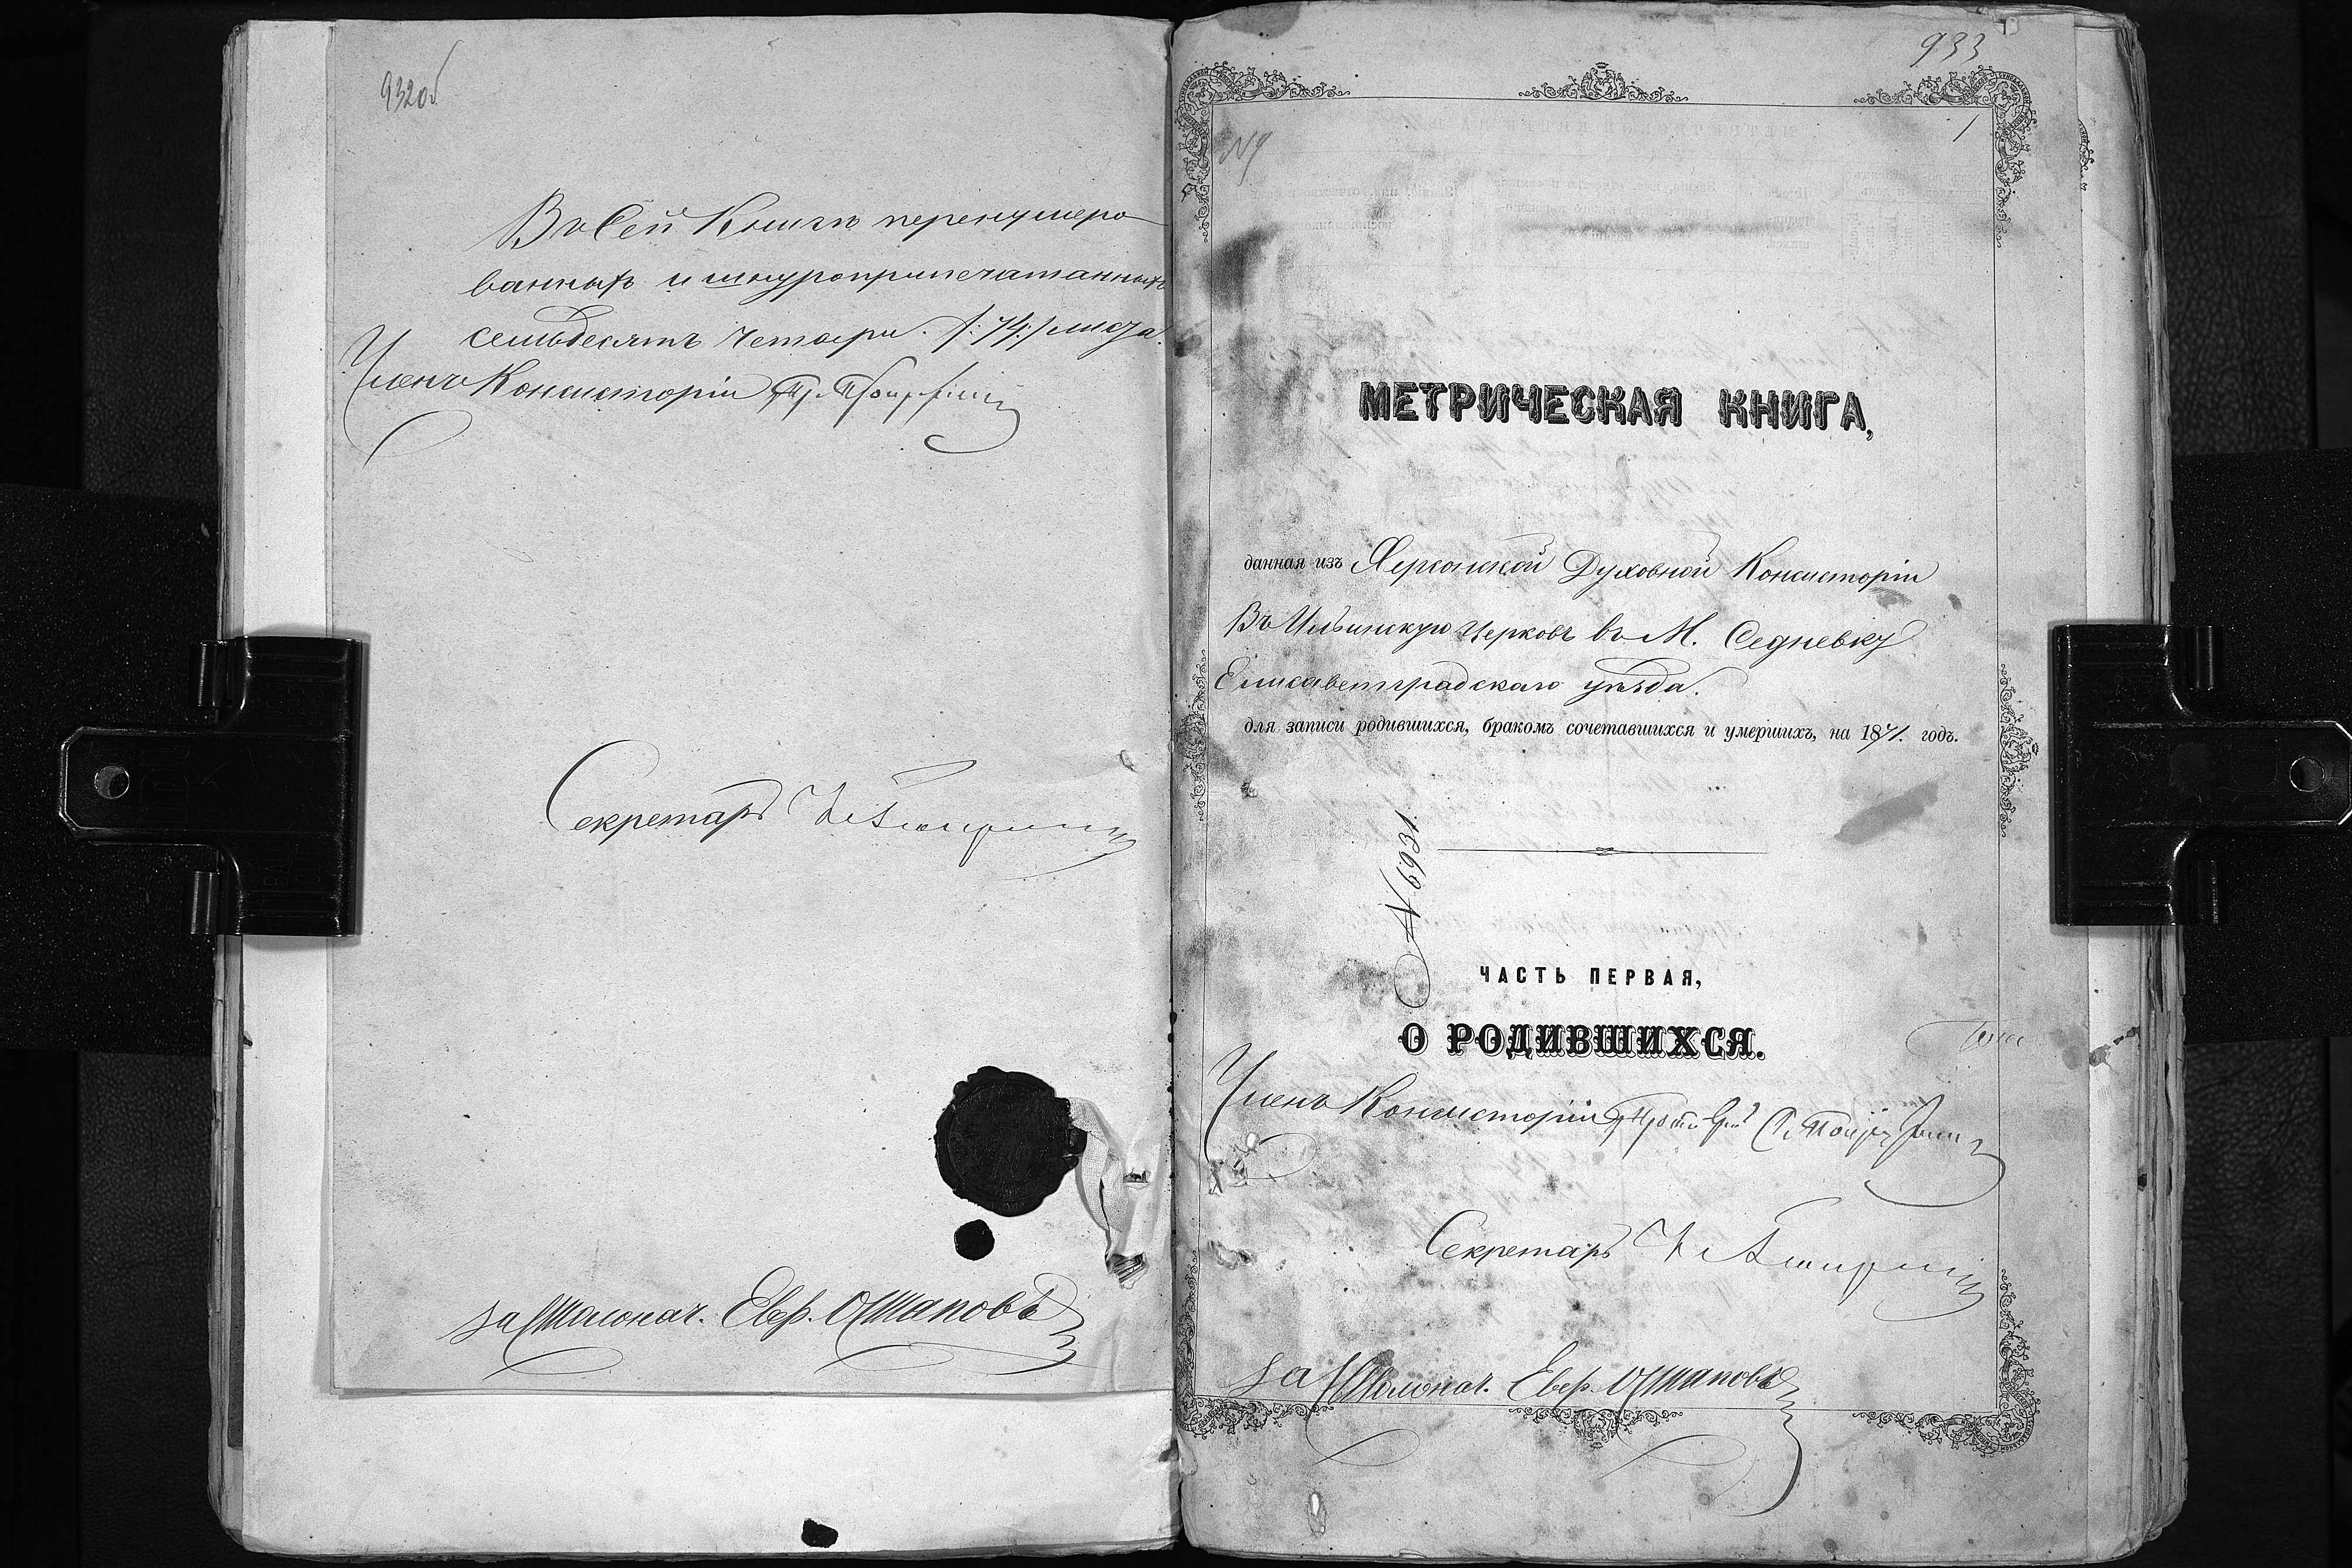 932об
Въ Сей Книгѣ перенумеро
ванныхъ и шнуроприпечатанныхъ
семьдесятъ четыри. /:74:/ листа.
Членъ Консисторіи
Секретарь
за Столонач. Евф. Остаповъ
933
1
№9
МЕТРИЧЕСКАЯ КНИГА,
данная изъ Херсонской Духовной Консисторіи
Въ Ильинскую Церковь въ М. Седневку
Елисаветградскаго уѣзда.
для записи родившихся, бракомъ сочетавшихся и умершихъ, на 1871. годъ.
№ 6931.
ЧАСТЬ ПЕРВАЯ,
О РОДИВШИХСЯ.
Членъ Консисторіи
Секретарь
за Столонач. Евф. Остаповъ